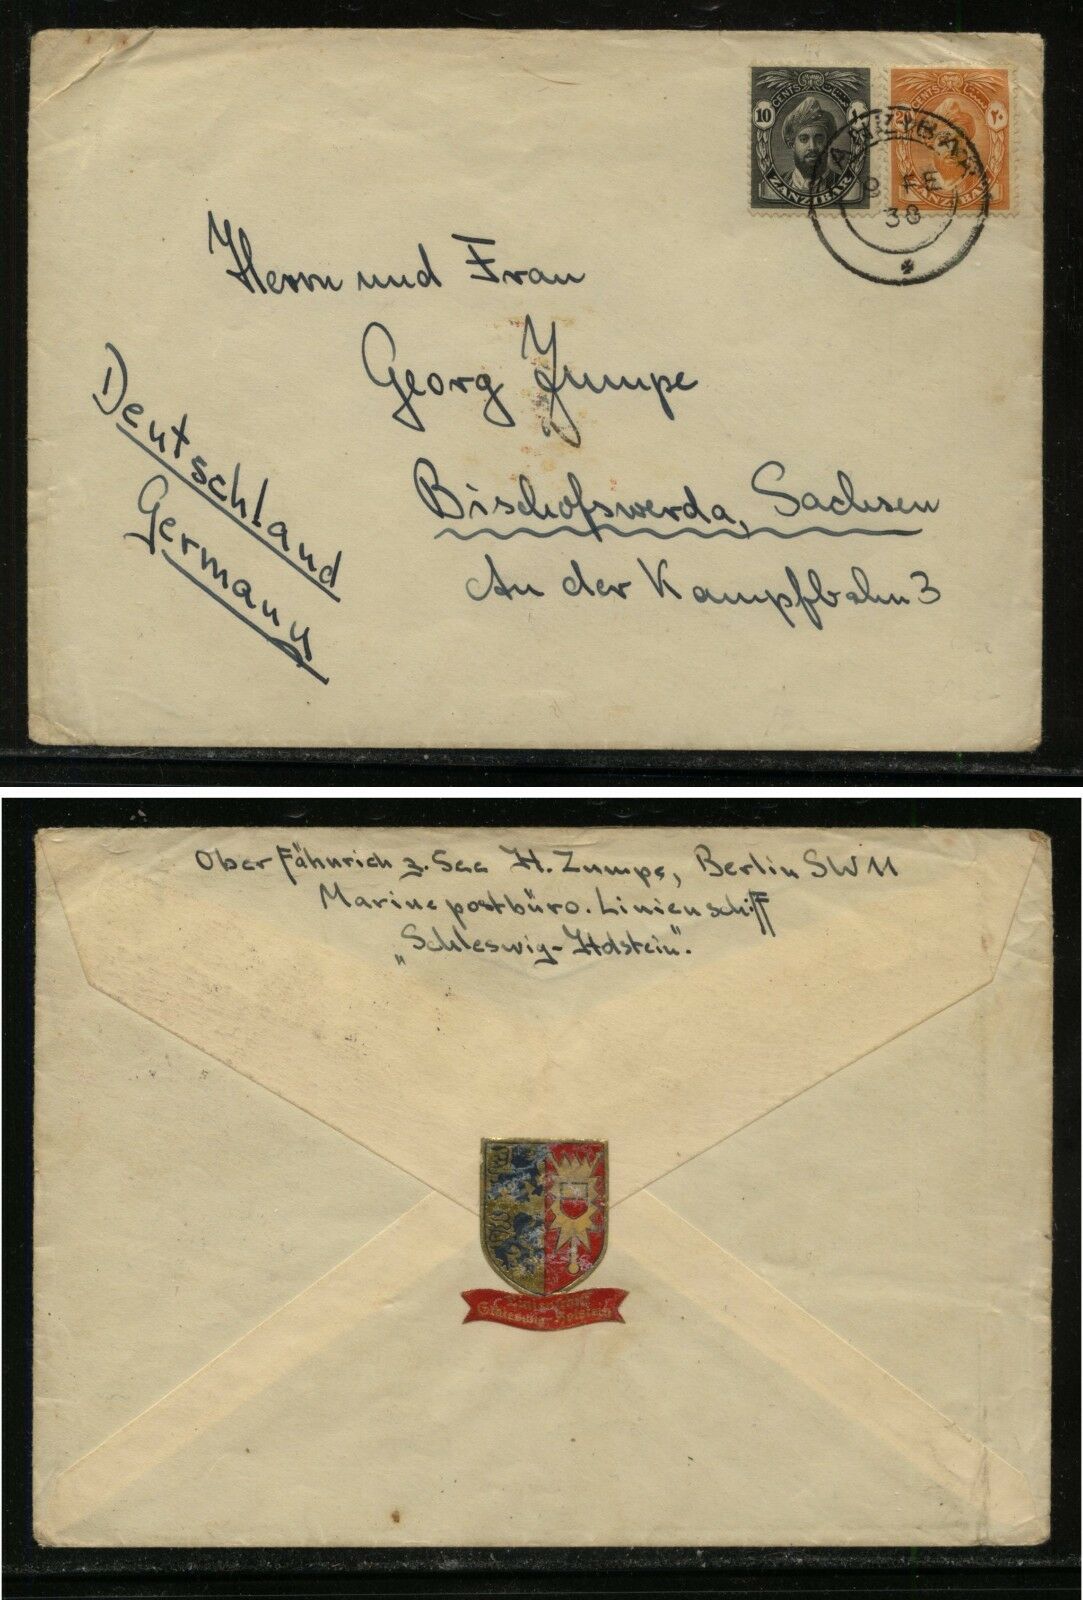 10 CENTS
ZANZIBAR
CENTS ٢٠
ZANZIBAR
ZANZIBAR
9 FE
38
Herrn und Frau
Georg Zumpe
Bischofswerda, Sachsen
An der Kampfbahn 3
Deutschland
Germany
Oberfähnrich z. See H. Zumpe, Berlin SW 11
Marinepostbüro. Linienschiff
„Schleswig-Holstein".
Linienschiff
Schleswig-Holstein